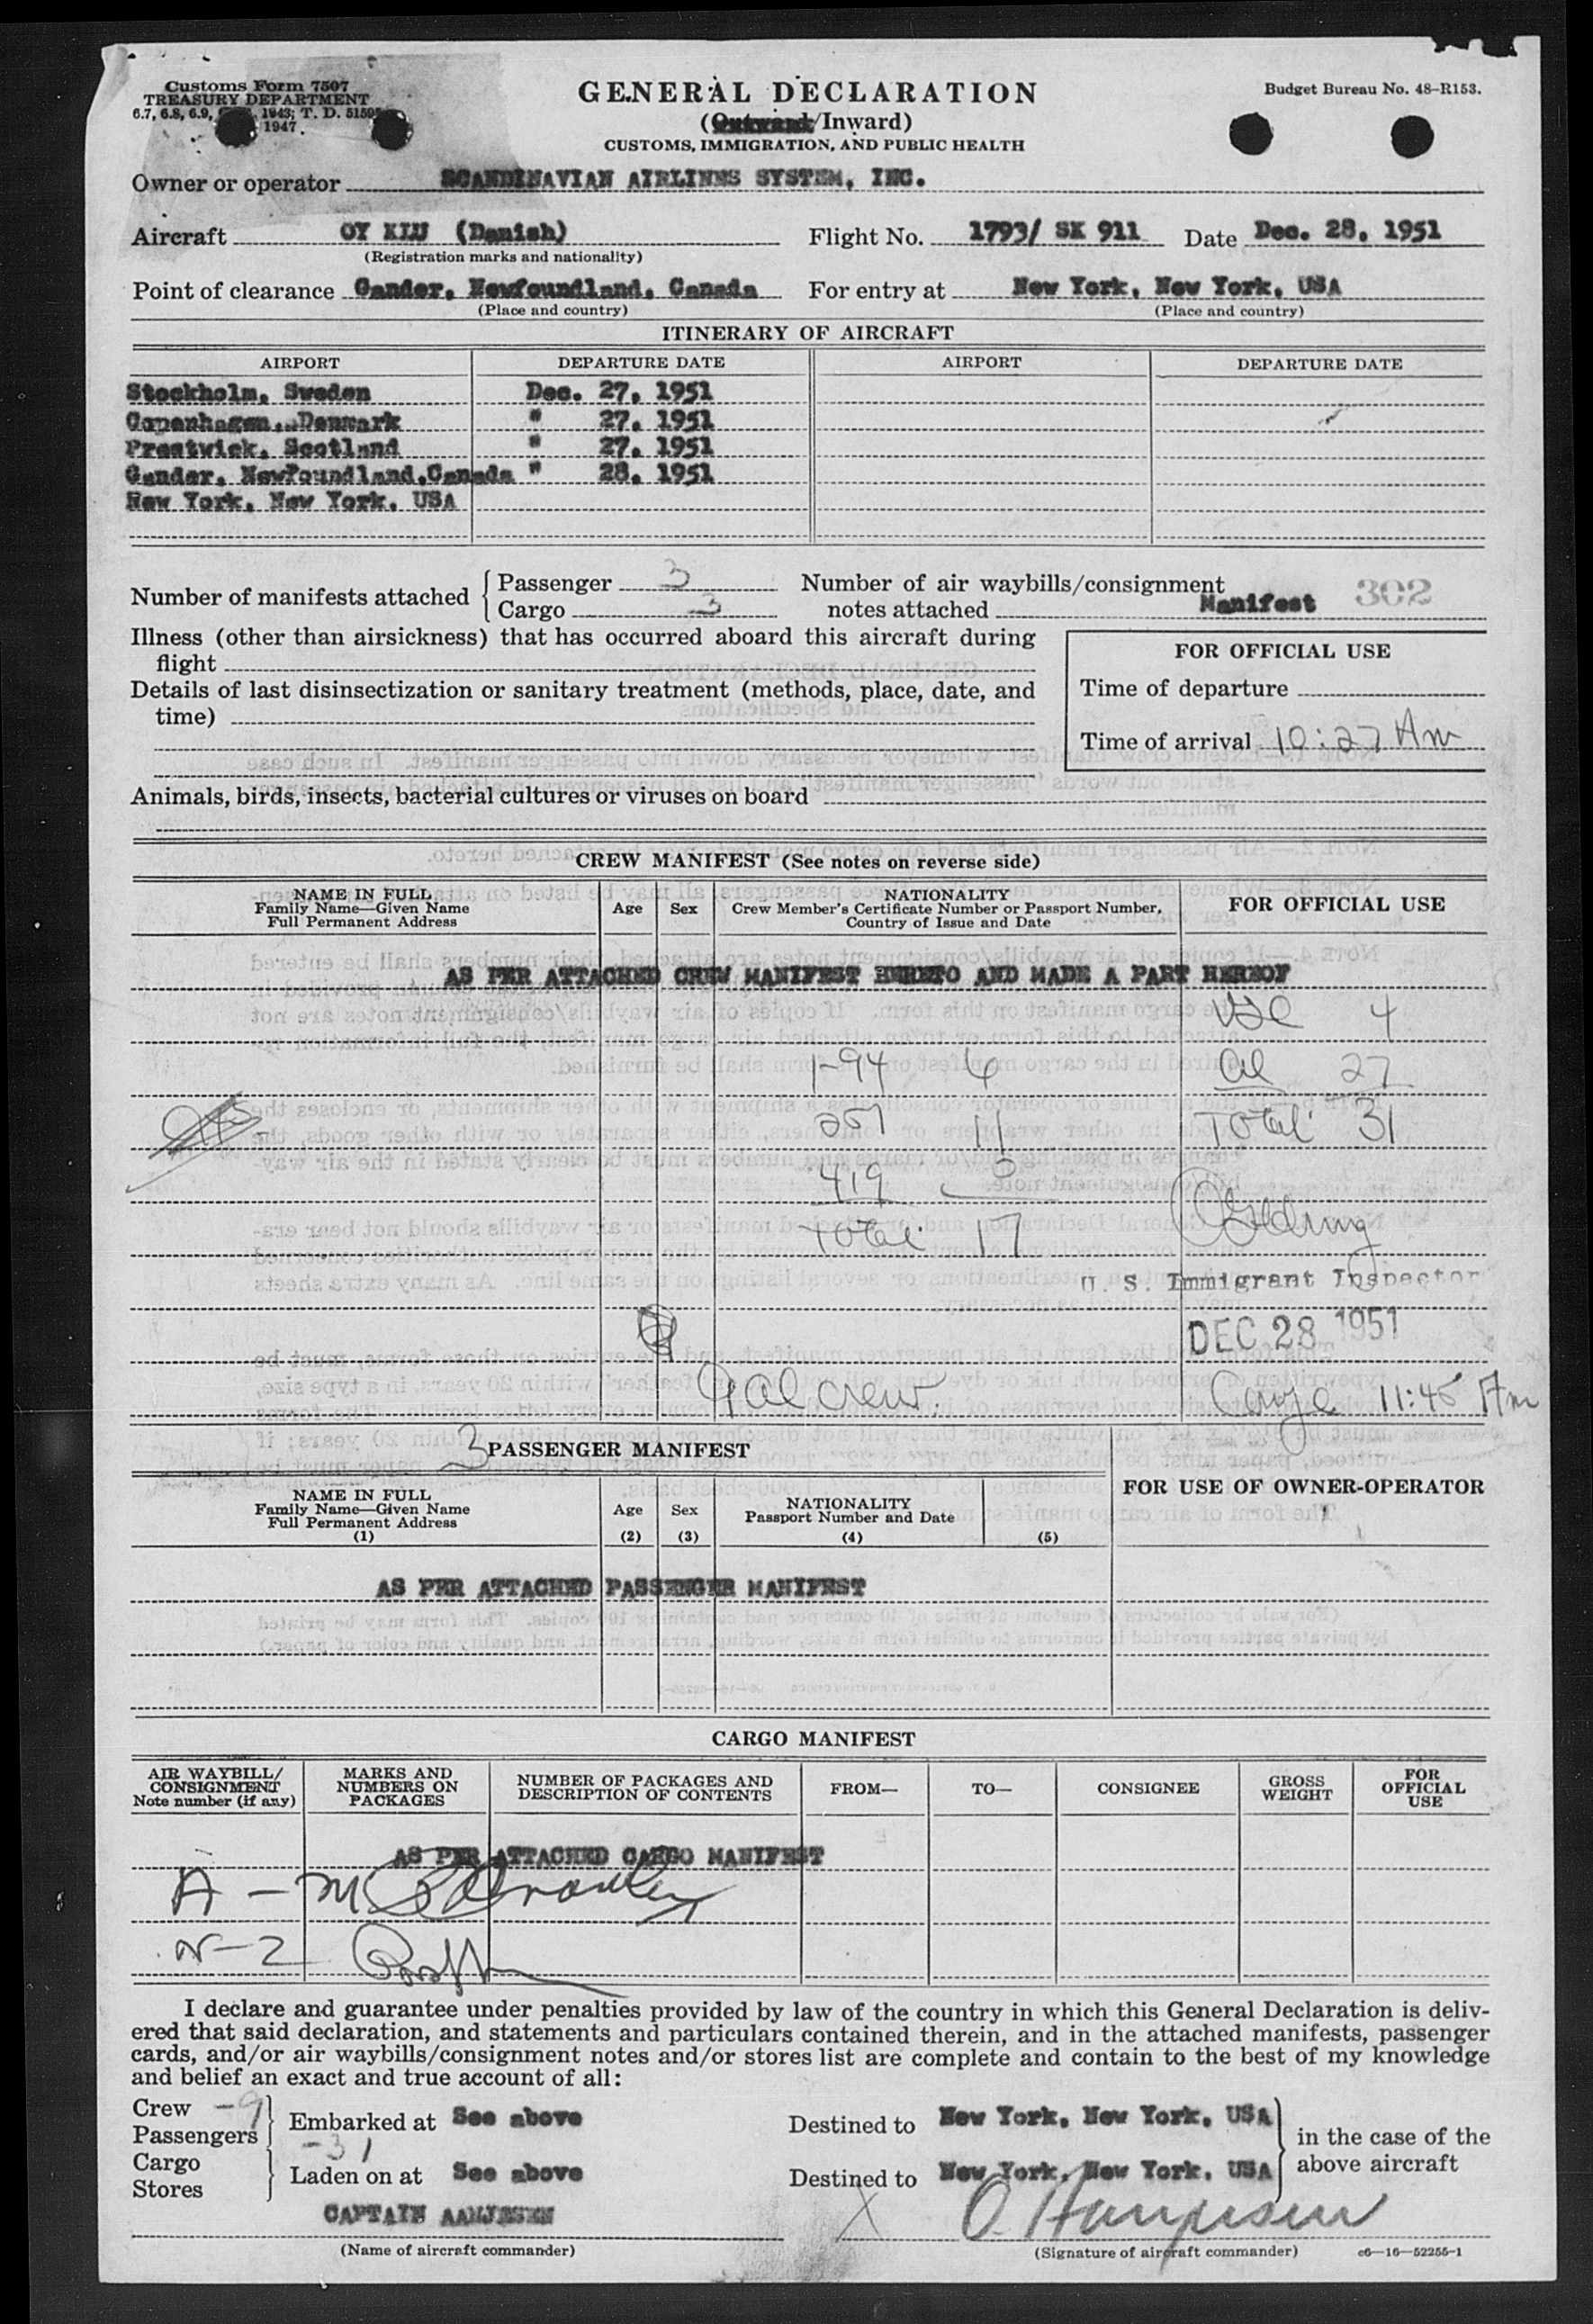 Customs Form 7507
TREASURY DEPARTMENT
6.7, 6.8, 6.9, 1943; T. D. 5159
1947.
GENERAL DECLARATION
(Outward/Inward)
CUSTOMS, IMMIGRATION, AND PUBLIC HEALTH
Budget Bureau No. 48–R153.
Owner or operator SCANDINAVIAN AIRLINES SYSTEM, INC.
Aircraft OY KLU (Danish) Flight No. 1793/ SK 911 Date Dec. 28, 1951
(Registration marks and nationality)
Point of clearance Gander, Newfoundland, Canada For entry at New York, New York, USA
(Place and country) (Place and country)
ITINERARY OF AIRCRAFT
AIRPORT DEPARTURE DATE AIRPORT DEPARTURE DATE
Stockholm, Sweden Dec. 27, 1951
Copenhagen, Denmark " 27, 1951
Prestwick, Scotland " 27, 1951
Gander, Newfoundland, Canada " 28, 1951
New York, New York, USA
Number of manifests attached { Passenger 3
Cargo 3
Number of air waybills/consignment
notes attached Manifest 302
Illness (other than airsickness) that has occurred aboard this aircraft during
flight
Details of last disinsectization or sanitary treatment (methods, place, date, and
time)
FOR OFFICIAL USE
Time of departure
Time of arrival 10:27 Am
Animals, birds, insects, bacterial cultures or viruses on board
CREW MANIFEST (See notes on reverse side)
NAME IN FULL
Family Name—Given Name
Full Permanent Address
Age Sex
NATIONALITY
Crew Member's Certificate Number or Passport Number,
Country of Issue and Date
FOR OFFICIAL USE
AS PER ATTACHED CREW MANIFEST HERETO AND MADE A PART HEREOF
USC 4
1-94 6 al 27
257 11 Total 31
419 0
Total 17
U. S. Immigrant Inspector
DEC 28 1951
9 al crew. 11:45 Am
3 PASSENGER MANIFEST
NAME IN FULL
Family Name—Given Name
Full Permanent Address
(1)
Age
(2)
Sex
(3)
NATIONALITY
Passport Number and Date
(4) (5)
FOR USE OF OWNER-OPERATOR
AS PER ATTACHED PASSENGER MANIFEST
CARGO MANIFEST
AIR WAYBILL/
CONSIGNMENT
Note number (if any)
MARKS AND
NUMBERS ON
PACKAGES
NUMBER OF PACKAGES AND
DESCRIPTION OF CONTENTS
FROM— TO— CONSIGNEE
GROSS
WEIGHT
FOR
OFFICIAL
USE
AS PER ATTACHED CARGO MANIFEST
A –
N-2
I declare and guarantee under penalties provided by law of the country in which this General Declaration is deliv-
ered that said declaration, and statements and particulars contained therein, and in the attached manifests, passenger
cards, and/or air waybills/consignment notes and/or stores list are complete and contain to the best of my knowledge
and belief an exact and true account of all:
Crew –9
Passengers –31
Embarked at See above Destined to New York, New York, USA
in the case of the
above aircraft
Cargo
Stores
Laden on at See above Destined to New York, New York, USA
CAPTAIN AANJESEN X
(Name of aircraft commander) (Signature of aircraft commander) c6—16—52255-1